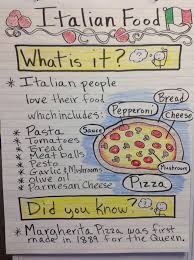 Italian Food
What is it?
* Italian people
love their food
which includes:
* Pasta
* Tomatoes
* Bread
* Meat balls
* Pesto
* Garlic & Mushrooms
* olive oil
* Parmesan Cheese
Bread
Pepperoni
Cheese
Sauce
Mushroom
Pizza
Did you know?
* Margherita Pizza was first
made in 1889 for the Queen.